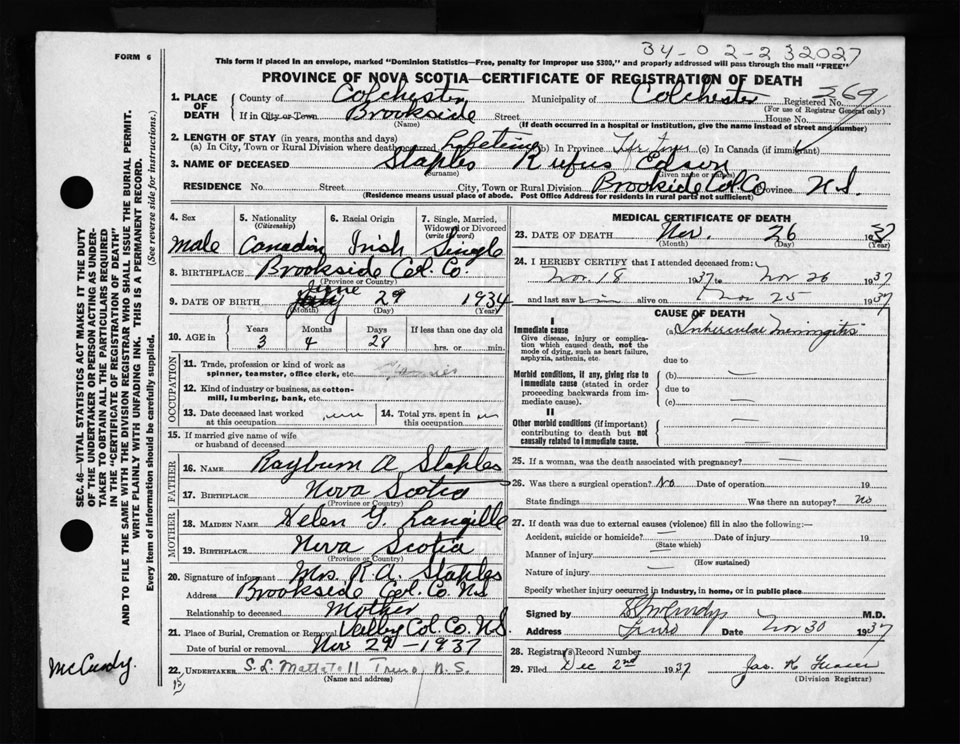 34-02-232027
FORM 6
This form if placed in an envelope, marked "Dominion Statistics—Free, penalty for improper use $300," and properly addressed will pass through the mail "FREE"
PROVINCE OF NOVA SCOTIA—CERTIFICATE OF REGISTRATION OF DEATH
1. PLACE OF DEATH
County of Colchester Municipality of Colchester Registered No. 369
(For use of Registrar General only)
If in City or Town Brookside Street House No.
(Name) (If death occurred in a hospital or institution, give the name instead of street and number)
2. LENGTH OF STAY (in years, months and days)
(a) In City, Town or Rural Division where death occurred Lifetime (b) In Province Life time (c) In Canada (if immigrant)
3. NAME OF DECEASED Staples Rufus
(Surname) (Given name or names)
RESIDENCE No. Street City, Town or Rural Division Brookside Col. Co Province N.S.
(Residence means usual place of abode. Post Office Address for residents in rural parts not sufficient)
4. Sex male
5. Nationality (Citizenship) Canadian
6. Racial Origin Irish
7. Single, Married, Widowed or Divorced (write the word) Single
8. BIRTHPLACE Brookside Col. Co.
(Province or Country)
9. DATE OF BIRTH June 29 1934
(Month) (Day) (Year)
10. AGE in Years 3 Months 4 Days 28 If less than one day old hrs. or min.
OCCUPATION
11. Trade, profession or kind of work as spinner, teamster, office clerk, etc.
12. Kind of industry or business, as cotton-mill, lumbering, bank, etc.
13. Date deceased last worked at this occupation
14. Total yrs. spent in this occupation
15. If married give name of wife or husband of deceased
FATHER
16. NAME Rayburn A Staples
17. BIRTHPLACE Nova Scotia
(Province or Country)
MOTHER
18. MAIDEN NAME Helen G. Langille
19. BIRTHPLACE Nova Scotia
(Province or Country)
20. Signature of informant Mrs. R A. Staples
Address Brookside Col. Co. N.S.
Relationship to deceased Mother
21. Place of Burial, Cremation or Removal Valley Col. Co. N.S.
Date of burial or removal Nov 29-1937
22. UNDERTAKER S. L. Mattatall Truro, N.S.
(Name and address)
MEDICAL CERTIFICATE OF DEATH
23. DATE OF DEATH Nov. 26 1937
(Month) (Day) (Year)
24. I HEREBY CERTIFY that I attended deceased from:
Nov. 18 1937 to Nov 26 1937
and last saw him alive on Nov 25 1937
CAUSE OF DEATH
I
Immediate cause
Give disease, injury or complication which caused death, not the mode of dying, such as heart failure, asphyxia, asthenia, etc.
(a) Tubercular Meningitis
due to
Morbid conditions, if any, giving rise to immediate cause (stated in order proceeding backwards from immediate cause).
(b) —
due to
(c) —
II
Other morbid conditions (if important) contributing to death but not causally related to immediate cause.
25. If a woman, was the death associated with pregnancy? —
26. Was there a surgical operation? No Date of operation 19
State findings Was there an autopsy? No
27. If death was due to external causes (violence) fill in also the following:—
Accident, suicide or homicide? Date of injury 19
(State which)
Manner of injury
(How sustained)
Nature of injury
Specify whether injury occurred in Industry, in home, or in public place
Signed by M.D.
Address Truro Date Nov 30 1937
28. Registrar's Record Number
29. Filed Dec 2nd 1937 Jas. K
(Division Registrar)
SEC. 46—VITAL STATISTICS ACT MAKES IT THE DUTY OF THE UNDERTAKER OR PERSON ACTING AS UNDERTAKER TO OBTAIN ALL THE PARTICULARS REQUIRED IN THE "CERTIFICATE OF REGISTRATION OF DEATH" AND TO FILE THE SAME WITH THE DIVISION REGISTRAR WHO SHALL ISSUE THE BURIAL PERMIT.
WRITE PLAINLY WITH UNFADING INK. THIS IS A PERMANENT RECORD.
Every item of information should be carefully supplied. (See reverse side for instructions.)
McCurdy.